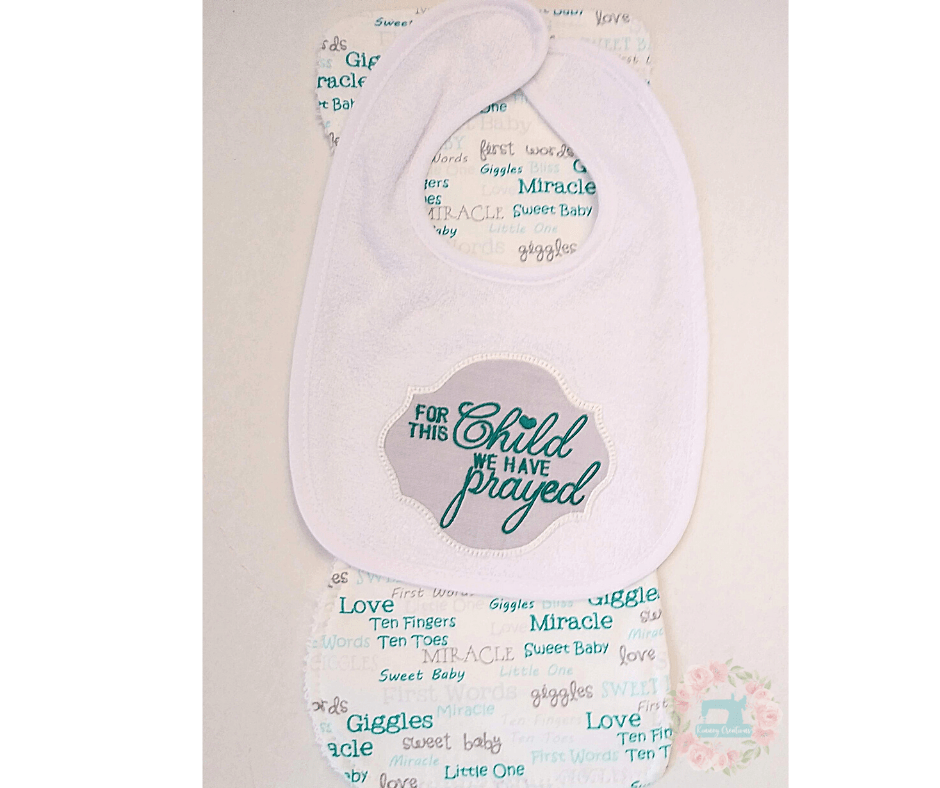 Sweet
Baby
love
Gig
Miracle
One
Baby
first words
Words
Giggles Bliss
Love
Miracle
MIRACLE
Sweet Baby
Little One
Words
giggles
FOR
THIS
Child
WE HAVE
prayed
First Words
Giggles Bliss
Giggle
Love
Little One
Ten Fingers
Love
Miracle
Words
Ten Toes
MIRACLE
Sweet Baby
love
GIGGLES
Sweet Baby
Little One
First Words
giggles
SWEET
Miracle
First
Giggles
Ten Fingers
Love
Ten Fin
acle
sweet baby
Ten Toes
First Words
Ten T
Miracle
by
love
Little One